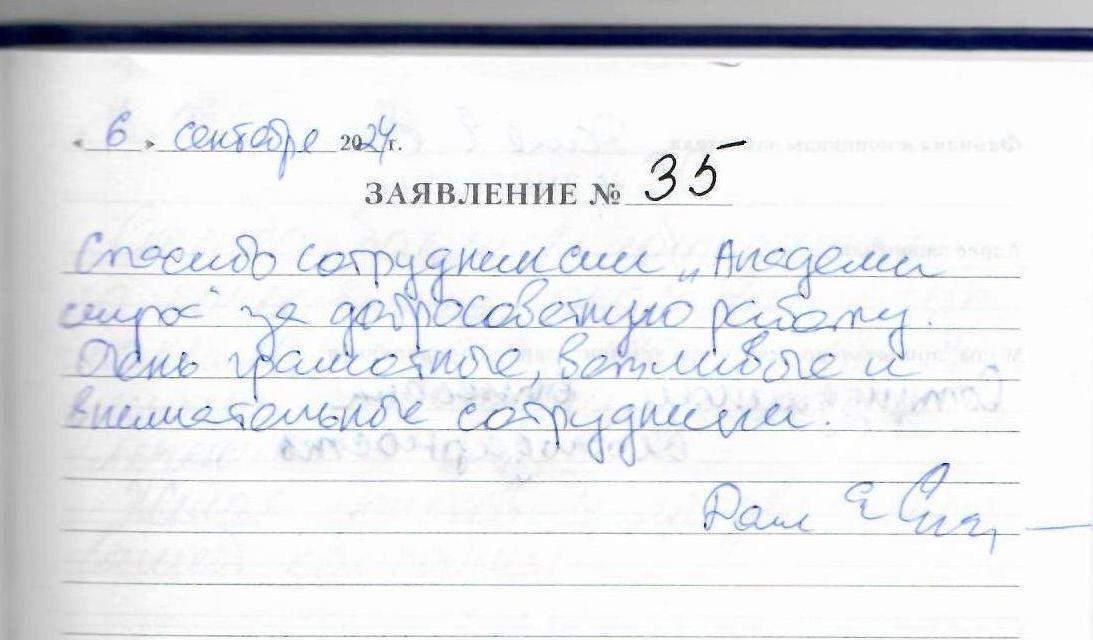 « 6 » сентября 2024г.
ЗАЯВЛЕНИЕ № 35
Спасибо сотрудникам „Академи
мира" за добросоветную работу.
Очень грамотные, вежливые и
внимательные сотрудники.